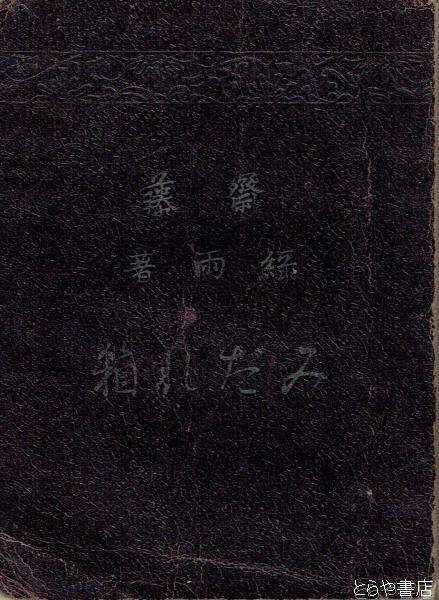 齋藤
緑雨著
みだれ箱
とらや書店